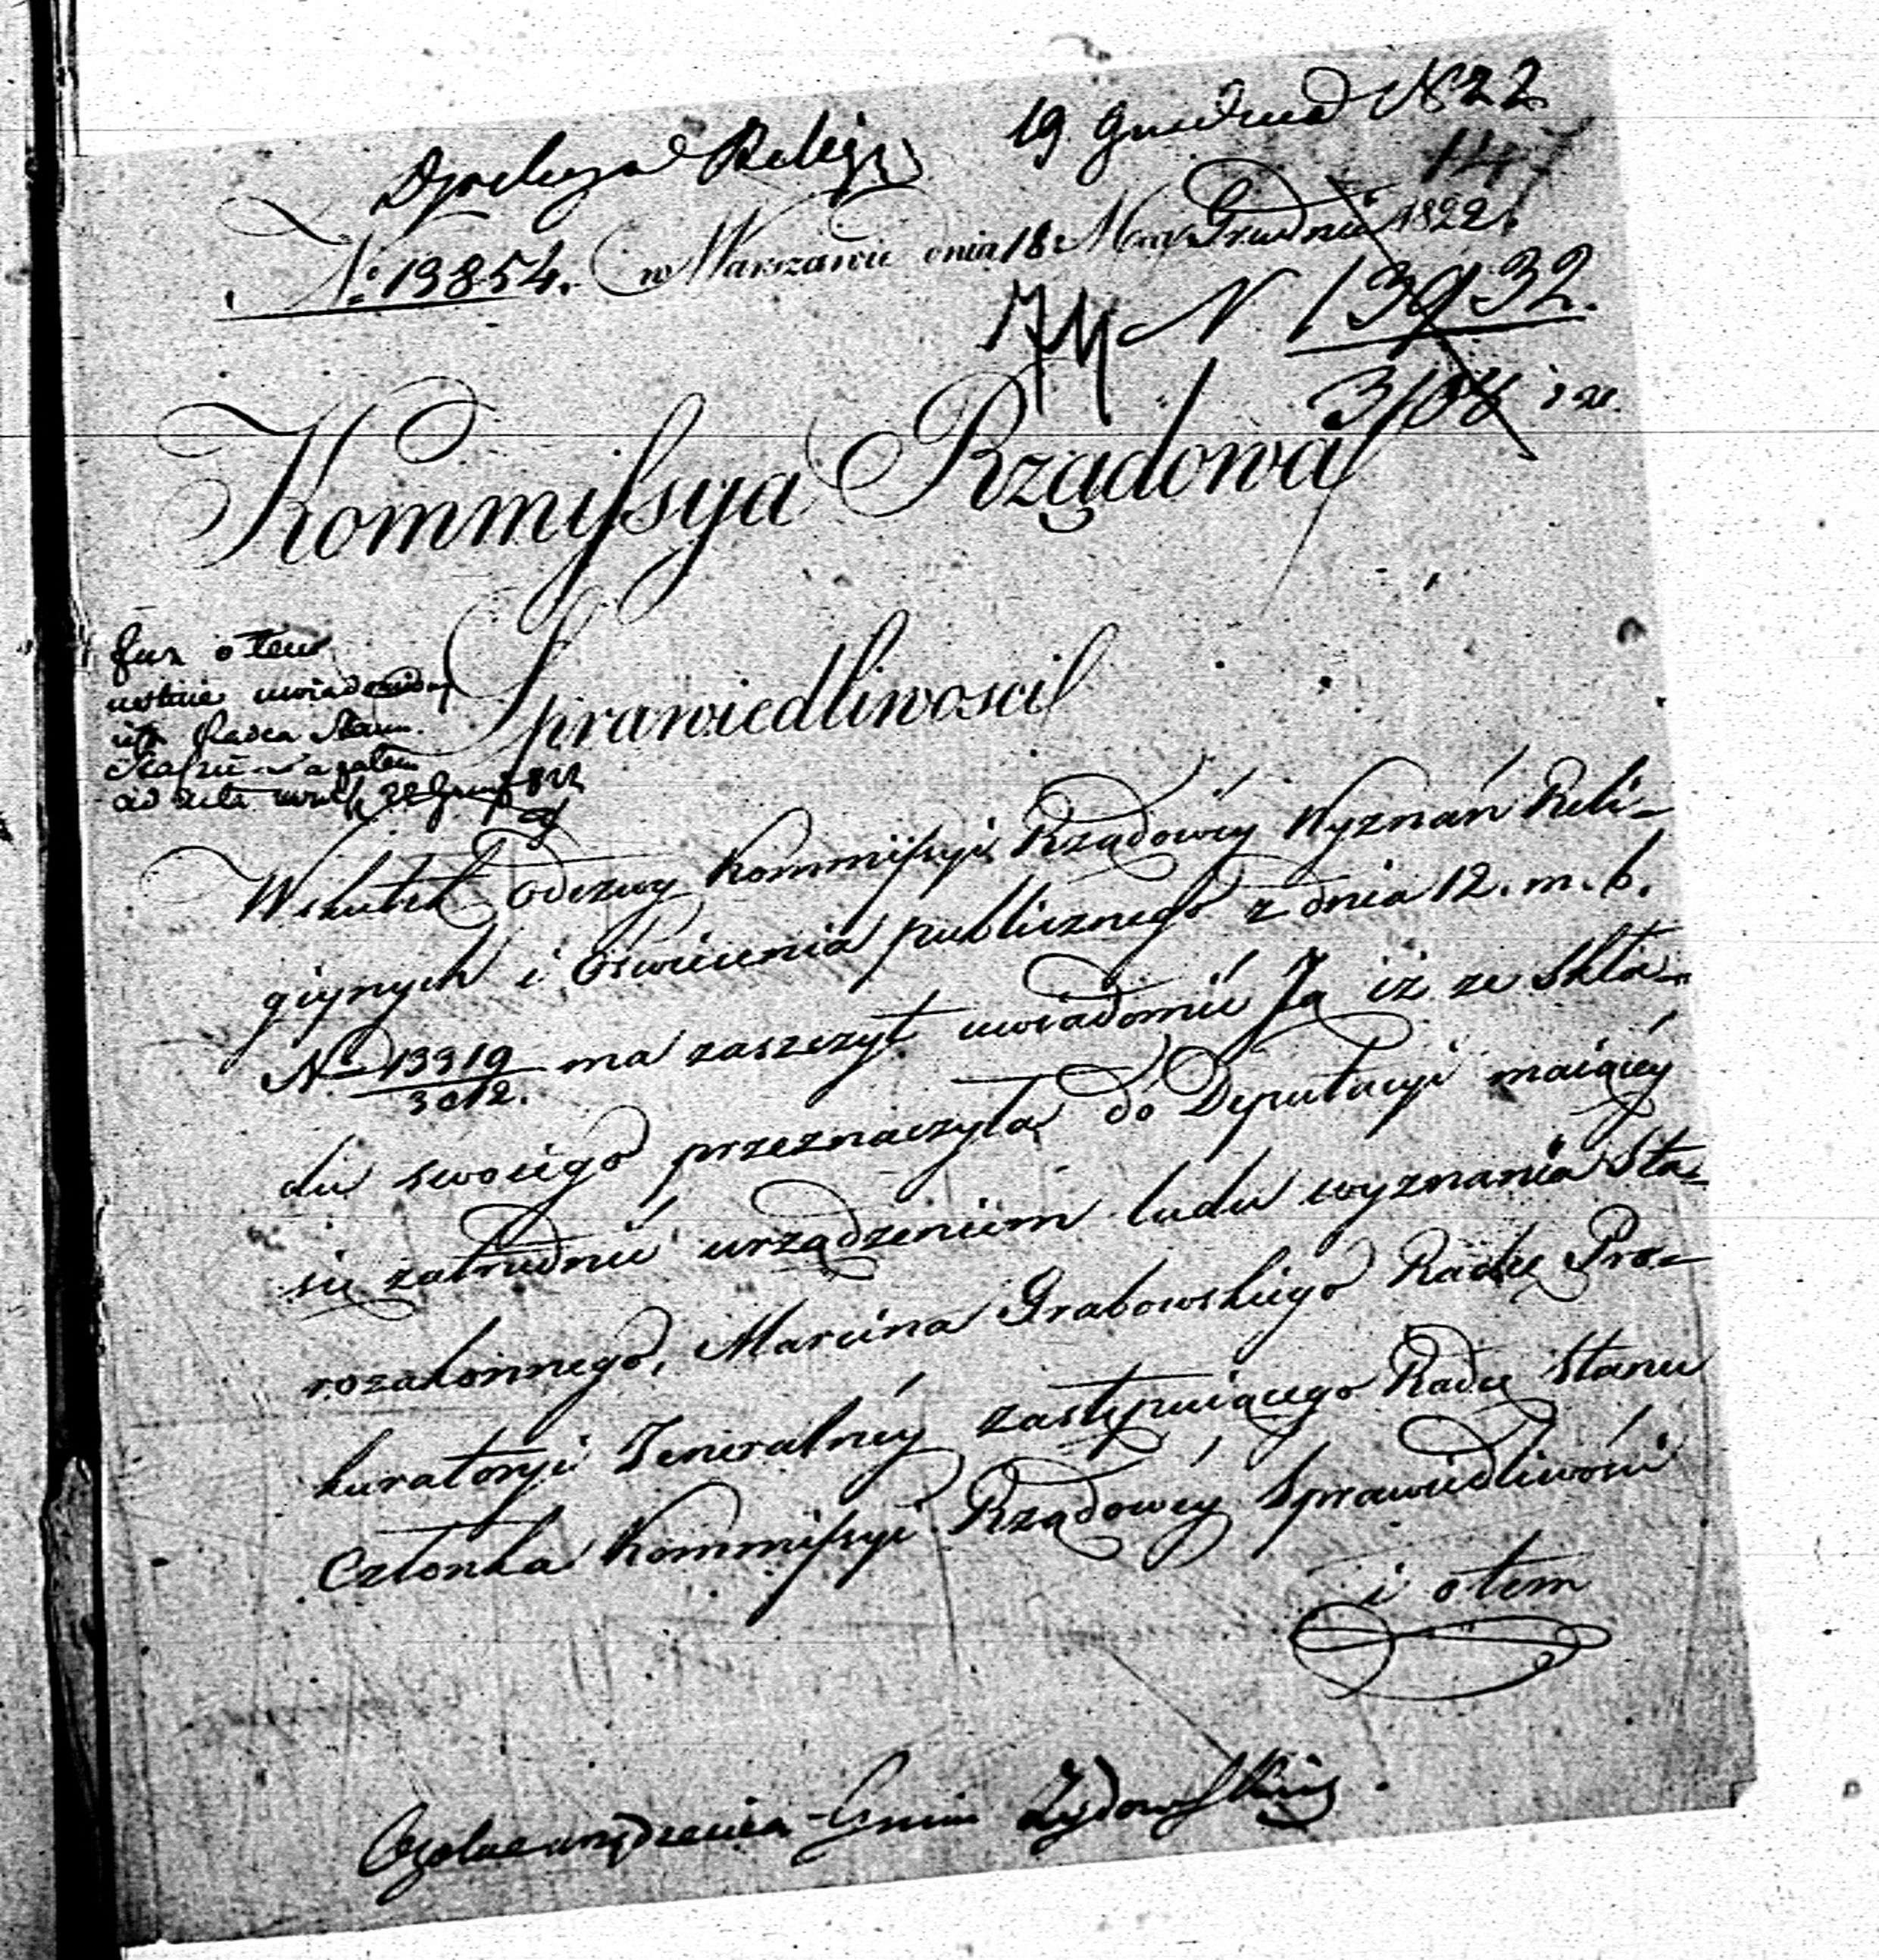 Dyrekcya Religij 19. Grudnia 1822
147
No. 13854. w Warszawie dnia 18. Mca Grudnia 1822.
N 13932.
Kommissya Rządowa
Sprawiedliwosci
Już o tem
ustnie uwiadomiony
Radca Stanu
a zatem
ad acta 22 Grud. 822
Wskutek odezwy Kommissyi Rządowéy Wyznań Reli-
giynych i Oświecenia publicznego z dnia 12. m. b.
No. 13319/3012. ma zaszczyt uwiadomić Ją iż ze skła-
du swoiego przeznaczyła do Deputacyi maiącéy
się zatrudnić urządzeniem ludu wyznania Sta-
rozakonnego, Marcina Grabowskiego Radcę Pro-
kuratoryi Jeneralnéy zastępuiącego Radcę Stanu
Członka Kommissyi Rządowéy Sprawiedliwości
i o tem
Ogólne urządzenia Gmin Żydowskich